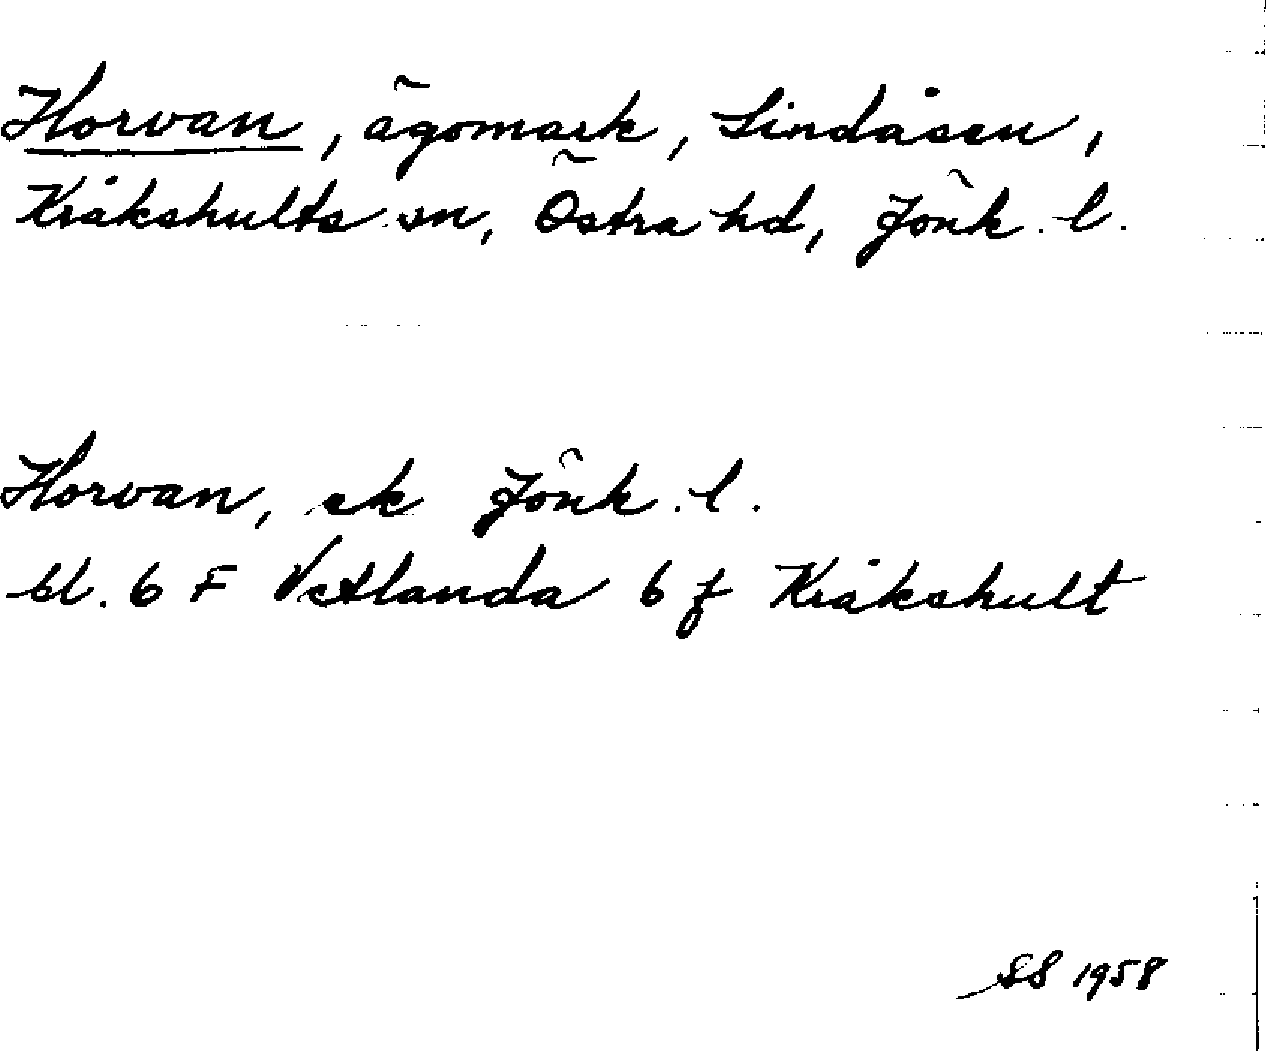 Horvan, ägomark, Lindåsen,
Kråkshults sn, Östra hd, Jönk. l.
Horvan, ek Jönk. l.
bl. 6 F Vetlanda 6 f Kråkshult
SS 1958